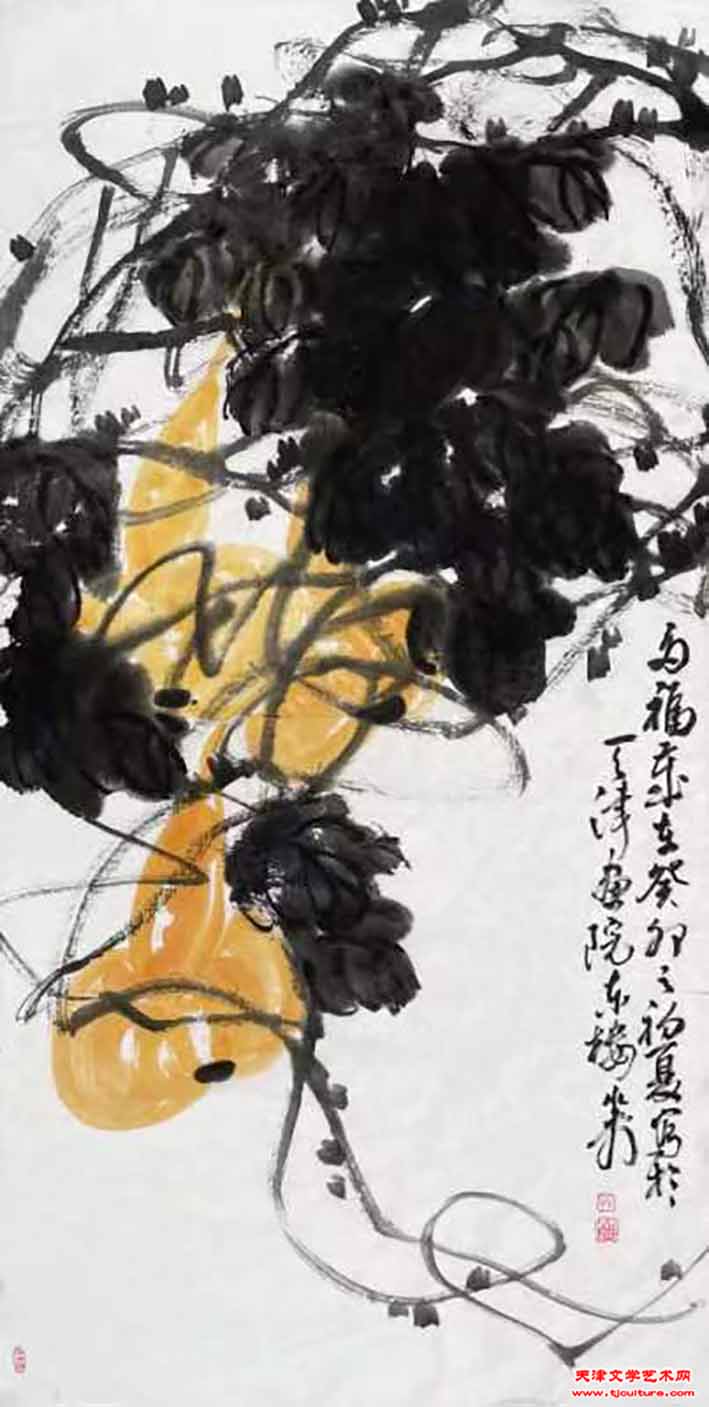 多福歲在癸卯之初夏写於
天津画院东楼
天津文学艺术网
www.tjculture.com